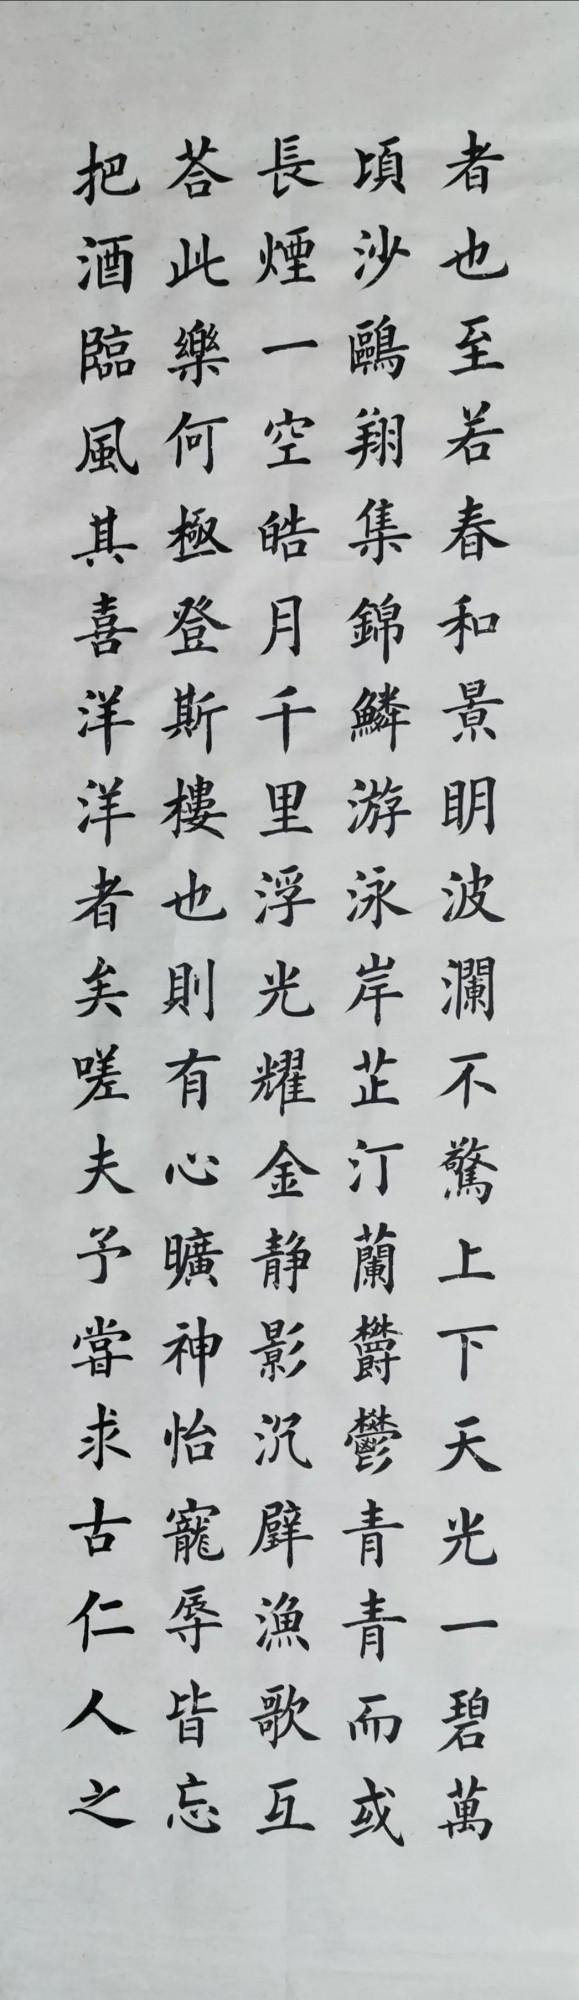 者也至若春和景明波瀾不驚上下天光一碧萬
頃沙鷗翔集錦鱗游泳岸芷汀蘭欝鬱青青而或
長煙一空皓月千里浮光耀金静影沉壁漁歌互
荅此樂何極登斯樓也則有心曠神怡寵辱皆忘
把酒臨風其喜洋洋者矣嗟夫予甞求古仁人之